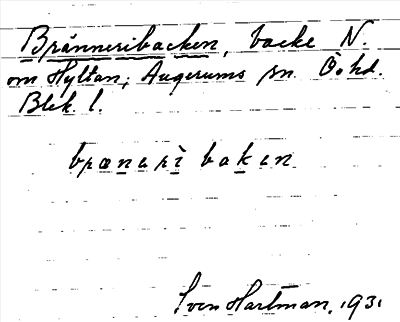 Bränneribacken, backe N.
om Hyltan, Augerums sn. Ö. hd.
Blek. l.
bræneri baken
Sven Hartman, 1931